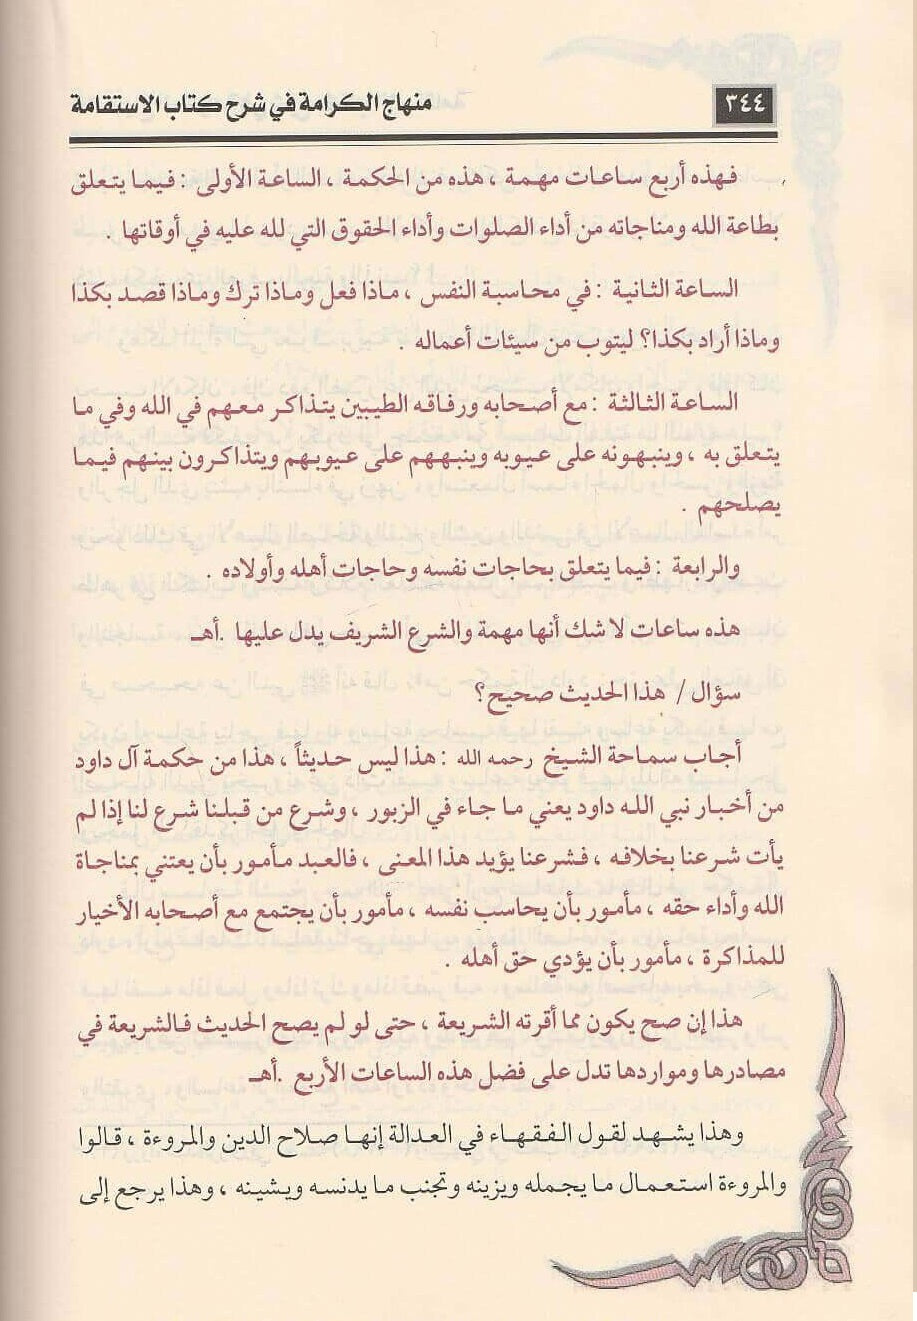 ٣٤٤
منهاج الكرامة في شرح كتاب الاستقامة
فهذه أربع ساعات مهمة ، هذه من الحكمة ، الساعة الأولى : فيما يتعلق
بطاعة الله ومناجاته من أداء الصلوات وأداء الحقوق التي لله عليه في أوقاتها .
الساعة الثانية : في محاسبة النفس ، ماذا فعل وماذا ترك وماذا قصد بكذا
وماذا أراد بكذا؟ ليتوب من سيئات أعماله .
الساعة الثالثة : مع أصحابه ورفاقه الطيبين يتذاكر معهم في الله وفي ما
يتعلق به ، وينبهونه على عيوبه وينبههم على عيوبهم ويتذاكرون بينهم فيما
يصلحهم .
والرابعة : فيما يتعلق بحاجات نفسه وحاجات أهله وأولاده .
هذه ساعات لا شك أنها مهمة والشرع الشريف يدل عليها .أهـ
سؤال / هذا الحديث صحيح؟
أجاب سماحة الشيخ رحمه الله : هذا ليس حديثاً ، هذا من حكمة آل داود
من أخبار نبي الله داود يعني ما جاء في الزبور ، وشرع من قبلنا شرع لنا إذا لم
يأت شرعنا بخلافه ، فشرعنا يؤيد هذا المعنى ، فالعبد مأمور بأن يعتني بمناجاة
الله وأداء حقه ، مأمور بأن يحاسب نفسه ، مأمور بأن يجتمع مع أصحابه الأخيار
للمذاكرة ، مأمور بأن يؤدي حق أهله .
هذا إن صح يكون مما أقرته الشريعة ، حتى لو لم يصح الحديث فالشريعة في
مصادرها ومواردها تدل على فضل هذه الساعات الأربع .أهـ
وهذا يشهد لقول الفقهاء في العدالة إنها صلاح الدين والمروءة ، قالوا
والمروءة استعمال ما يجمله ويزينه وتجنب ما يدنسه ويشينه ، وهذا يرجع إلى